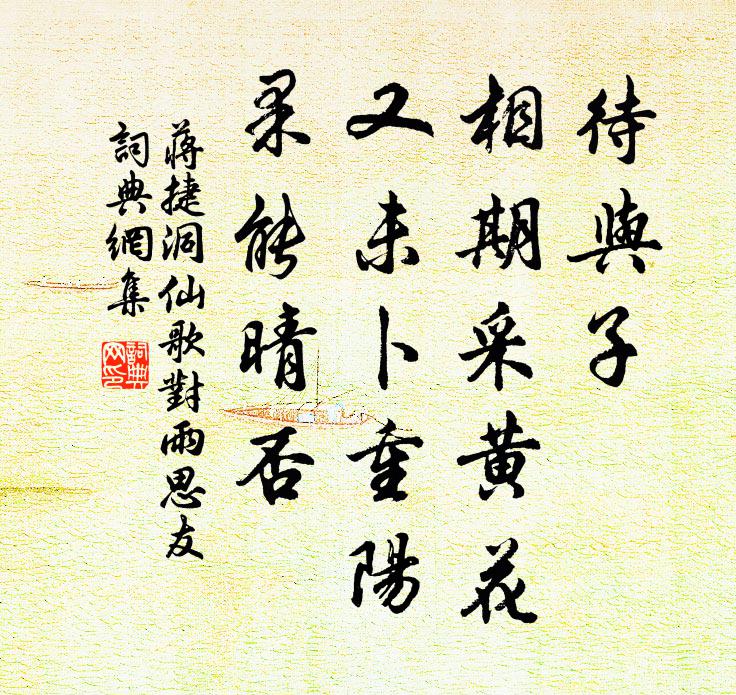 待與子
相期采黄花
又未卜重陽
果能晴否
蔣捷洞仙歌對雨思友
詞典網集
詞典网印